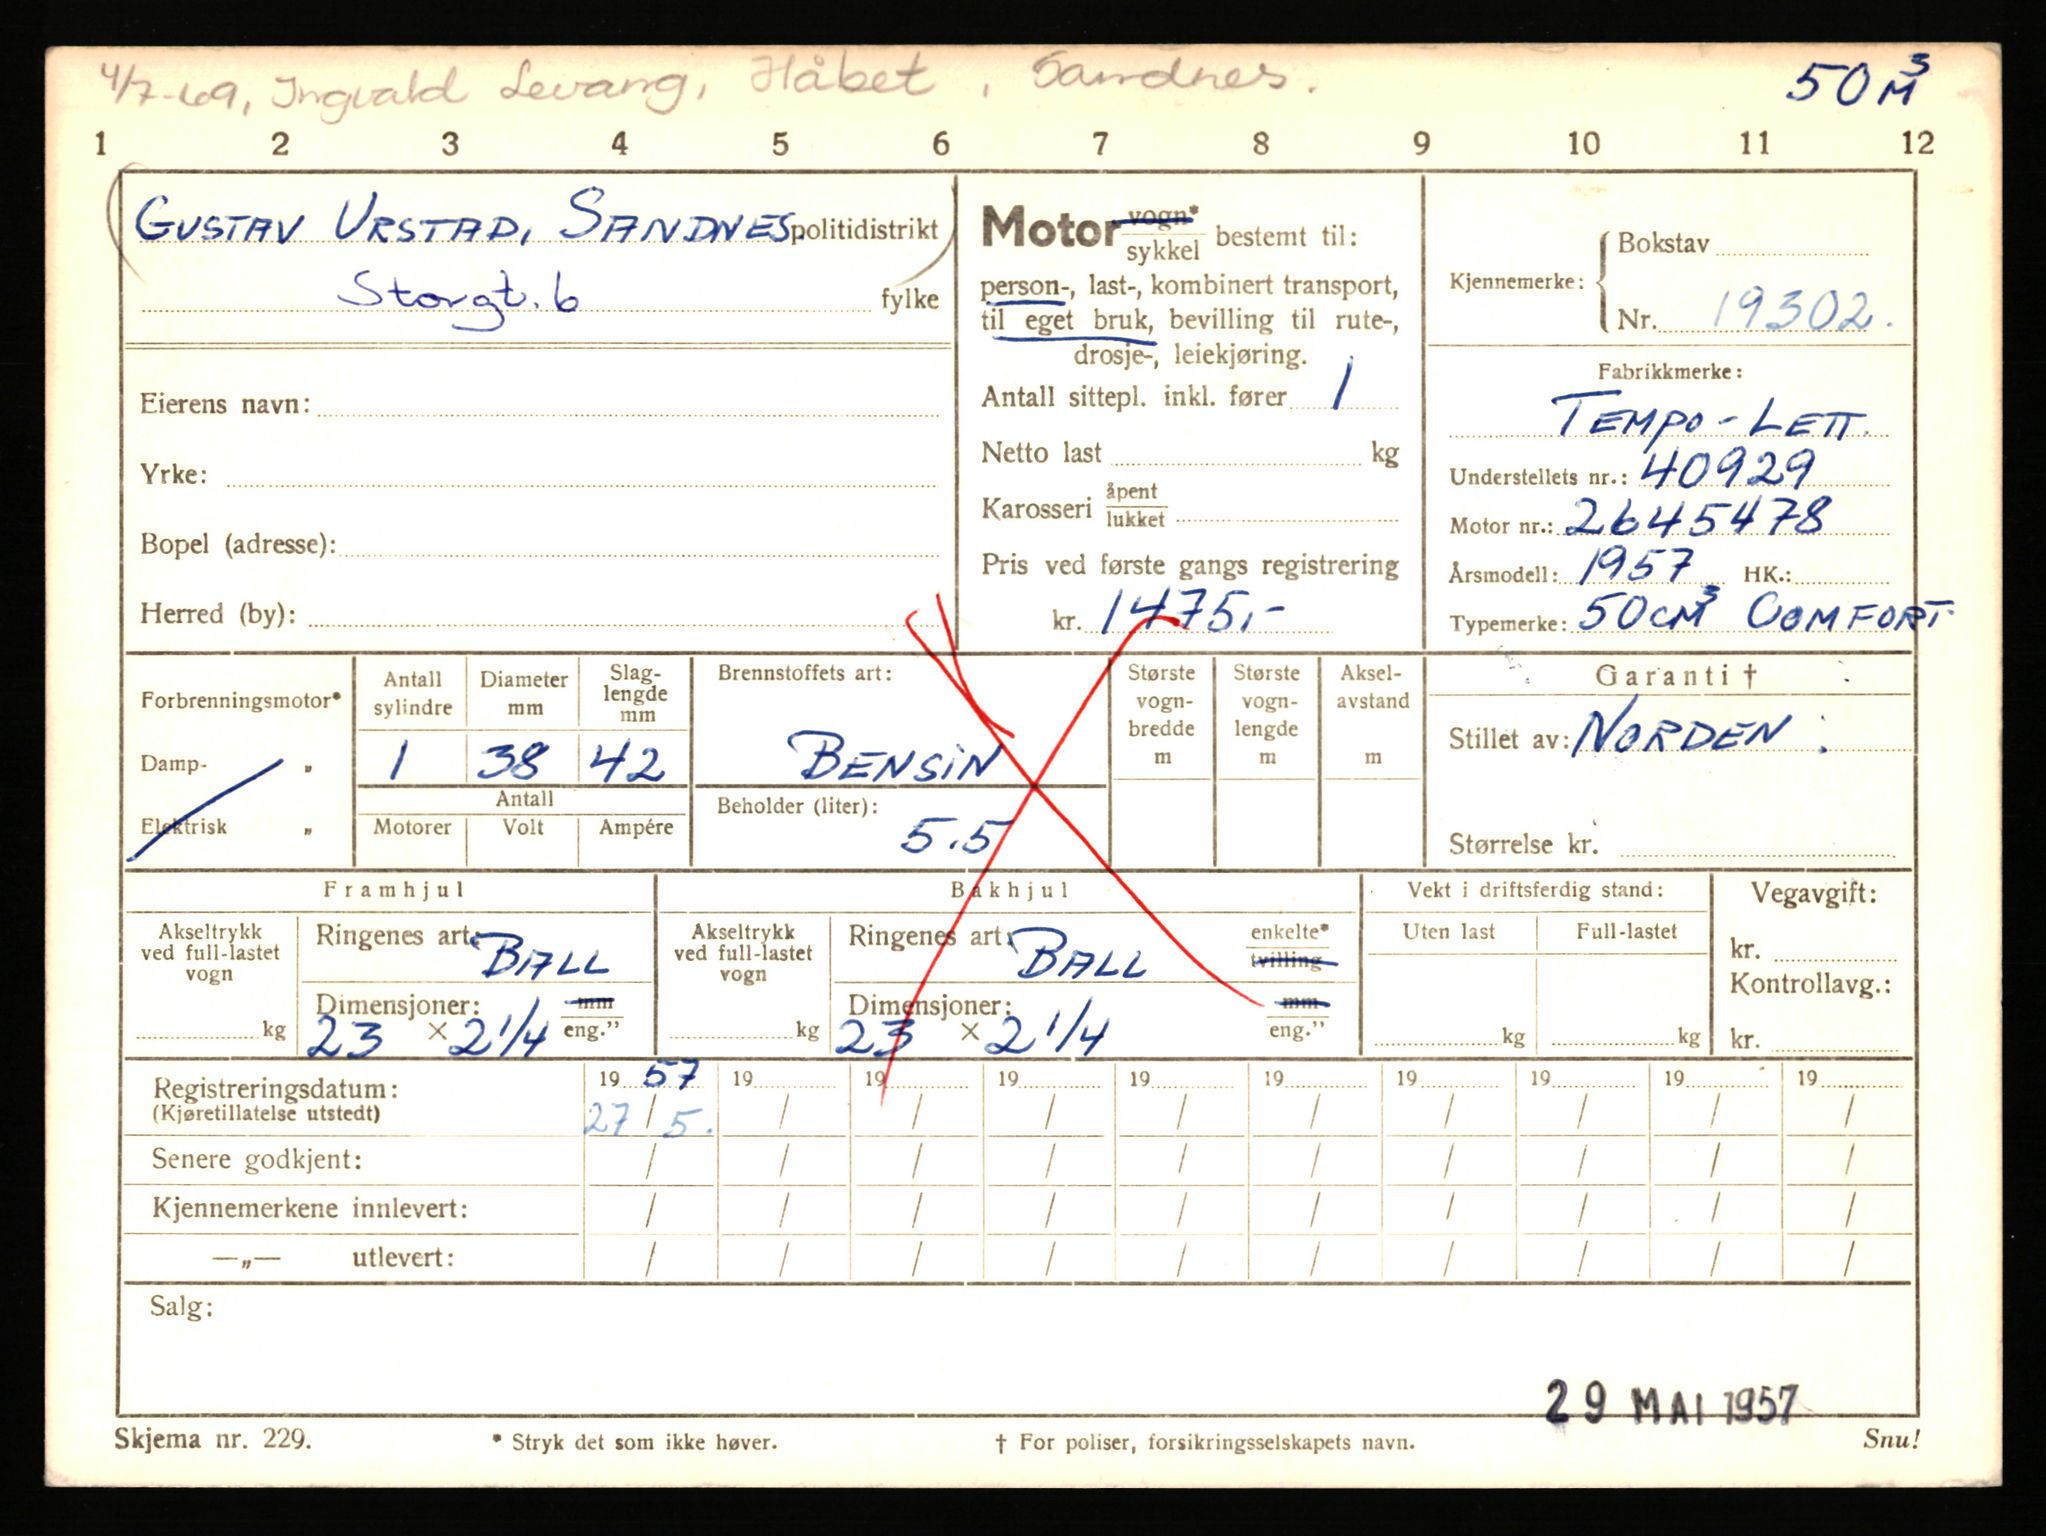 4/7-69, Ingvald Levang, Håbet, Sandnes.
50 M3
1 2 3 4 5 6 7 8 9 10 11 12
GUSTAV URSTAD, SANDNES. politidistrikt
Storgt. 6 fylke
Eierens navn:
Yrke:
Bopel (adresse):
Herred (by):
Motor vogn* / sykkel bestemt til:
person-, last-, kombinert transport,
til eget bruk, bevilling til rute-,
drosje-, leiekjøring.
Antall sittepl. inkl. fører 1
Netto last kg
Karosseri åpent / lukket
Pris ved første gangs registrering
kr. 1475,-
Kjennemerke: { Bokstav
Nr. 19302.
Fabrikkmerke:
TEMPO-LETT.
Understellets nr.: 40929
Motor nr.: 2645478
Årsmodell: 1957 HK.:
Typemerke: 50 CM3 COMFORT
Forbrenningsmotor*
Damp- "
Elektrisk "
Antall sylindre Diameter mm Slag-lengde mm
1 38 42
Antall
Motorer Volt Ampére
Brennstoffets art:
BENSIN
Beholder (liter):
5.5
Største vogn-bredde m
Største vogn-lengde m
Aksel-avstand m
Garanti †
Stillet av: NORDEN.
Størrelse kr.
Framhjul
Akseltrykk ved full-lastet vogn
kg
Ringenes art: BALL
Dimensjoner: mm
23 × 2 1/4 eng."
Bakhjul
Akseltrykk ved full-lastet vogn
kg
Ringenes art: BALL enkelte* / tvilling
Dimensjoner: mm
23 × 2 1/4 eng."
Vekt i driftsferdig stand:
Uten last Full-lastet
kg kg
Vegavgift:
kr.
Kontrollavg.:
kr.
Registreringsdatum: 19 57 19 19 19 19 19 19 19 19 19
(Kjøretillatelse utstedt) 27 / 5. / / / / / / / / /
Senere godkjent: / / / / / / / / / /
Kjennemerkene innlevert: / / / / / / / / / /
—„— utlevert: / / / / / / / / / /
Salg:
29 MAI 1957
Skjema nr. 229. * Stryk det som ikke høver. † For poliser, forsikringsselskapets navn. Snu!